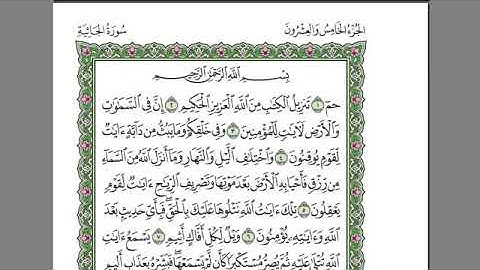 الجزء الخامس والعشرون
سورة الجاثية
بِسْمِ ٱللَّهِ ٱلرَّحْمَٰنِ ٱلرَّحِيمِ
حمٓ ١ تَنزِيلُ ٱلْكِتَٰبِ مِنَ ٱللَّهِ ٱلْعَزِيزِ ٱلْحَكِيمِ ٢ إِنَّ فِى ٱلسَّمَٰوَٰتِ
وَٱلْأَرْضِ لَـَٔايَٰتٍ لِّلْمُؤْمِنِينَ ٣ وَفِى خَلْقِكُمْ وَمَا يَبُثُّ مِن دَآبَّةٍ ءَايَٰتٌ
لِّقَوْمٍ يُوقِنُونَ ٤ وَٱخْتِلَٰفِ ٱلَّيْلِ وَٱلنَّهَارِ وَمَآ أَنزَلَ ٱللَّهُ مِنَ ٱلسَّمَآءِ
مِن رِّزْقٍ فَأَحْيَا بِهِ ٱلْأَرْضَ بَعْدَ مَوْتِهَا وَتَصْرِيفِ ٱلرِّيَٰحِ ءَايَٰتٌ لِّقَوْمٍ
يَعْقِلُونَ ٥ تِلْكَ ءَايَٰتُ ٱللَّهِ نَتْلُوهَا عَلَيْكَ بِٱلْحَقِّ فَبِأَىِّ حَدِيثٍۭ بَعْدَ
ٱللَّهِ وَءَايَٰتِهِۦ يُؤْمِنُونَ ٦ وَيْلٌ لِّكُلِّ أَفَّاكٍ أَثِيمٍ ٧ يَسْمَعُ ءَايَٰتِ
ٱللَّهِ تُتْلَىٰ عَلَيْهِ ثُمَّ يُصِرُّ مُسْتَكْبِرًا كَأَن لَّمْ يَسْمَعْهَا فَبَشِّرْهُ بِعَذَابٍ أَلِيمٍ